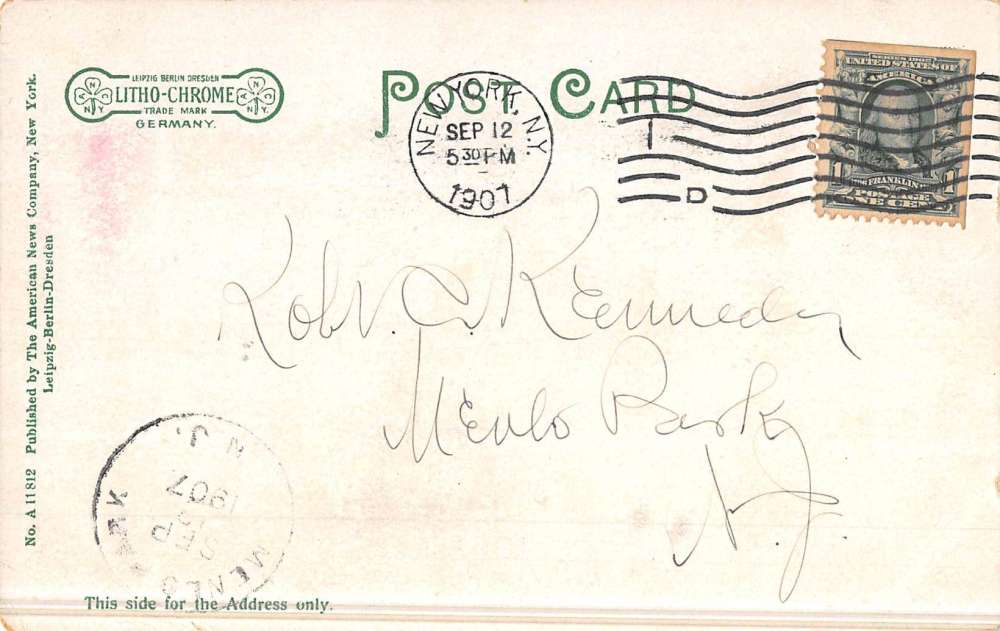 LEIPZIG BERLIN DRESDEN
LITHO-CHROME
TRADE MARK
GERMANY.
POST CARD
NEW YORK, N.Y.
SEP 12
5 30 PM
1907
1
D
SERIES 1902
UNITED STATES OF
AMERICA
1 FRANKLIN 1
POSTAGE
ONE CENT
Robt. Kennedy
Menlo Park
N.J.
MENLO PARK
N.J.
SEP
1907
No. A 11812 Published by The American News Company, New York.
Leipzig-Berlin-Dresden
This side for the Address only.